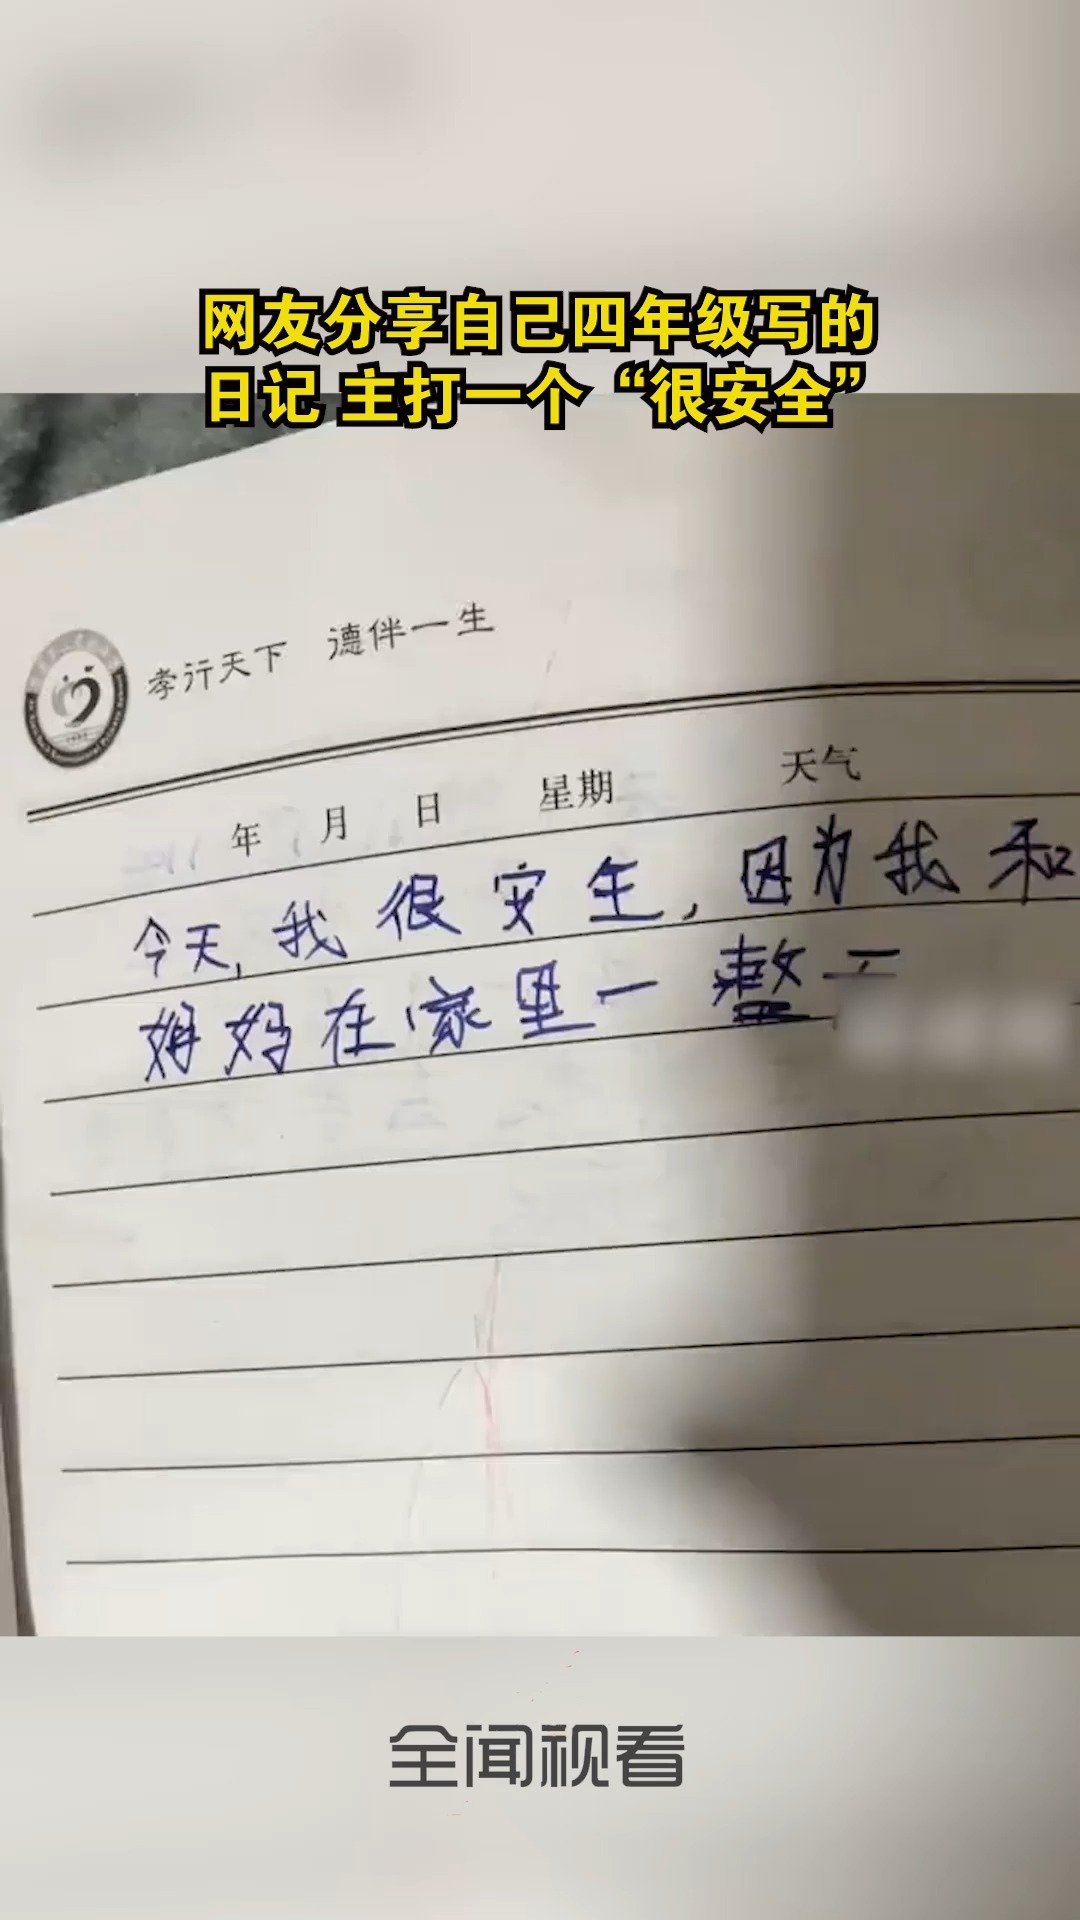 网友分享自己四年级写的
日记 主打一个“很安全”
孝行天下 德伴一生
年 月 日 星期 天气
今天,我很安全,因为我和
妈妈在家里一整天
全闻视看